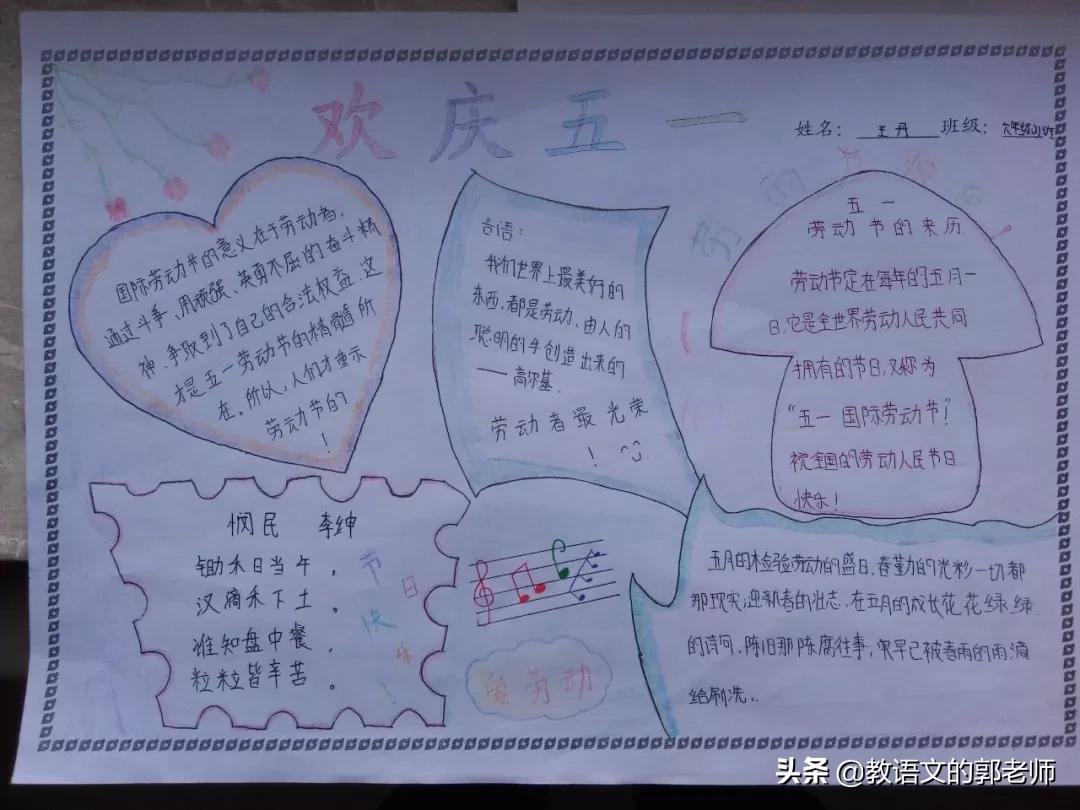 欢庆五一
姓名： 王丹 班级：六年级
国际劳动节的意义在于劳动者，
通过斗争、用顽强、英勇不屈的奋斗精
神、争取到了自己的合法权益、这
才是五一劳动节的精髓所
在。所以，人们才重示
劳动节的
！
言语：
我们世界上最美好的
东西，都是劳动、由人的
聪明的手创造出来的
——高尔基.
劳动者最光荣
！
五一
劳动节的来历.
劳动节定在每年的五月一
日，它是全世界劳动人民共同
拥有的节日，又称为
“五一国际劳动节”！
祝全国的劳动人民节日
快乐！
悯民 李绅
锄禾日当午，
汉滴禾下土。
谁知盘中餐，
粒粒皆辛苦。
节
日
快
乐
！
爱劳动
五月的检验劳动的盛日、春勤的光彩一切都
那现实，迎新春的壮志，在五月的成长花花绿绿.
的诗问，陈旧那陈腐往事，早已被春雨的雨滴
给刷洗..
头条 @教语文的郭老师